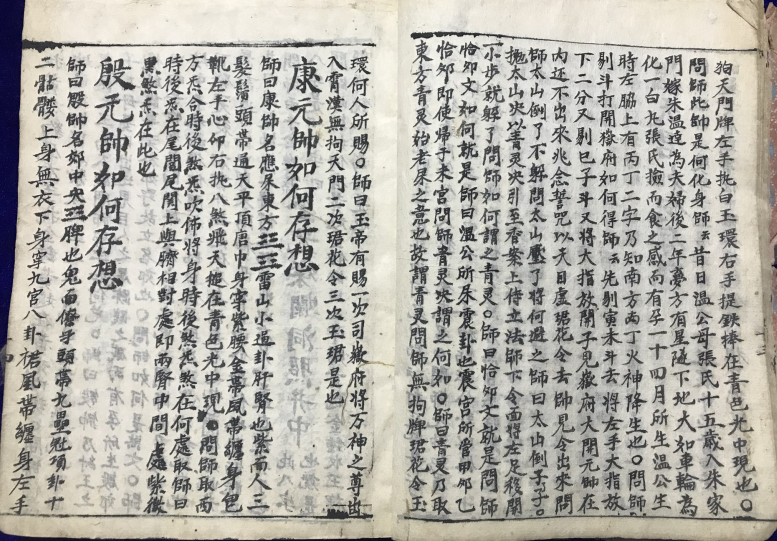 狥天門牌左手执白玉環右手提鉄棒在青色光中現也〇
問師此師是何化身師云昔日温公母張氏十五歳入朱家
門嫁朱温達為夫婦後二年夢方有星隕下地大如車輪為
化一白丸張氏撿而食之感而有孕一十四月所生温公生
時左脇上有丙丁二字乃知南方丙丁火神降生也〇問師
剔斗打開獄府如何得師云先剔寅未斗去將左手大指放
下二分又剔巳子斗又將大指放開子見嶽府大開元帥在
内还不出來兆念誓咒以天目虚珺花令去師見令出來問
師太山倒了不觧問太山壓了將何避之師曰太山倒子〇
抛太山决以青灵炁引至香案上待立法師下令面將左足移開
一小步就觧了問師如何謂之青灵〇師曰恰郊文就是問師
恰郊文如何就是師曰温公所居震卦也震宫所管甲卯乙
恰郊即使歸于来宫問師青灵炁謂之何如〇師曰青灵乃取
東方青灵始老居之意也故謂青灵問師無狥牌珺花令玉
環何人所賜〇師曰玉帝有賜一次司嶽府將万神之尊出
入霄漢無拘天門二次珺花令三次玉珺是也
康元帥如何存想
師曰康師名應朱東方三三雷山小過卦肝腎也紫面人三
髮鬚頭帶通天平頂唐巾身穿紫腰金帶風帶纏身包
靴左手心仰右执八煞飛天搥在青色光中現〇問師取西
方炁合時後煞炁吹佛將身時後煞炁煞在何處取師曰
時後炁在尾閭尾閭上與臍相對處即两腎中間一處紫微
黑煞炁在此也
殷元帥如何存想
師曰殷師名郊中央三脾也鬼面獠牙頭帶九曡冠項卦十
二骷髏上身無衣下身穿九宫八卦裙風帶纏身左手